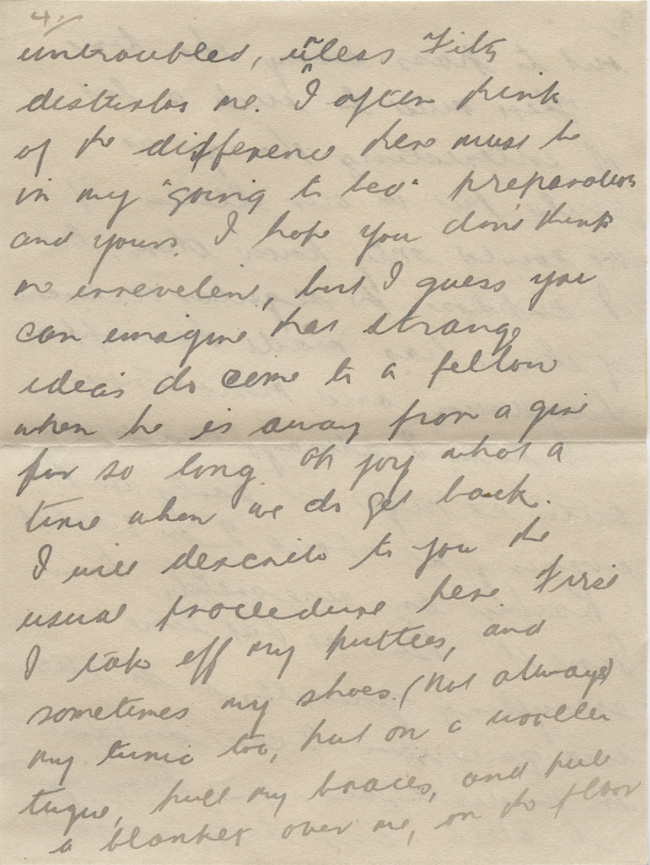 4/
untroubled, unless Fitz
disturbs me. I often think
of the difference there must be
in my "going to bed" preparations
and yours. I hope you don't think
me irrevelent, but I guess you
can imagine that strange
ideas do come to a fellow
when he is away from a girl
for so long. Oh joy what a
time when we do get back.
I will describe to you the
usual procedure here First
I take off my puttees, and
sometimes my shoes. (Not always)
my tunic too, put on a woollen
tuque, pull my braces, and pull
a blanket over me, on the floor